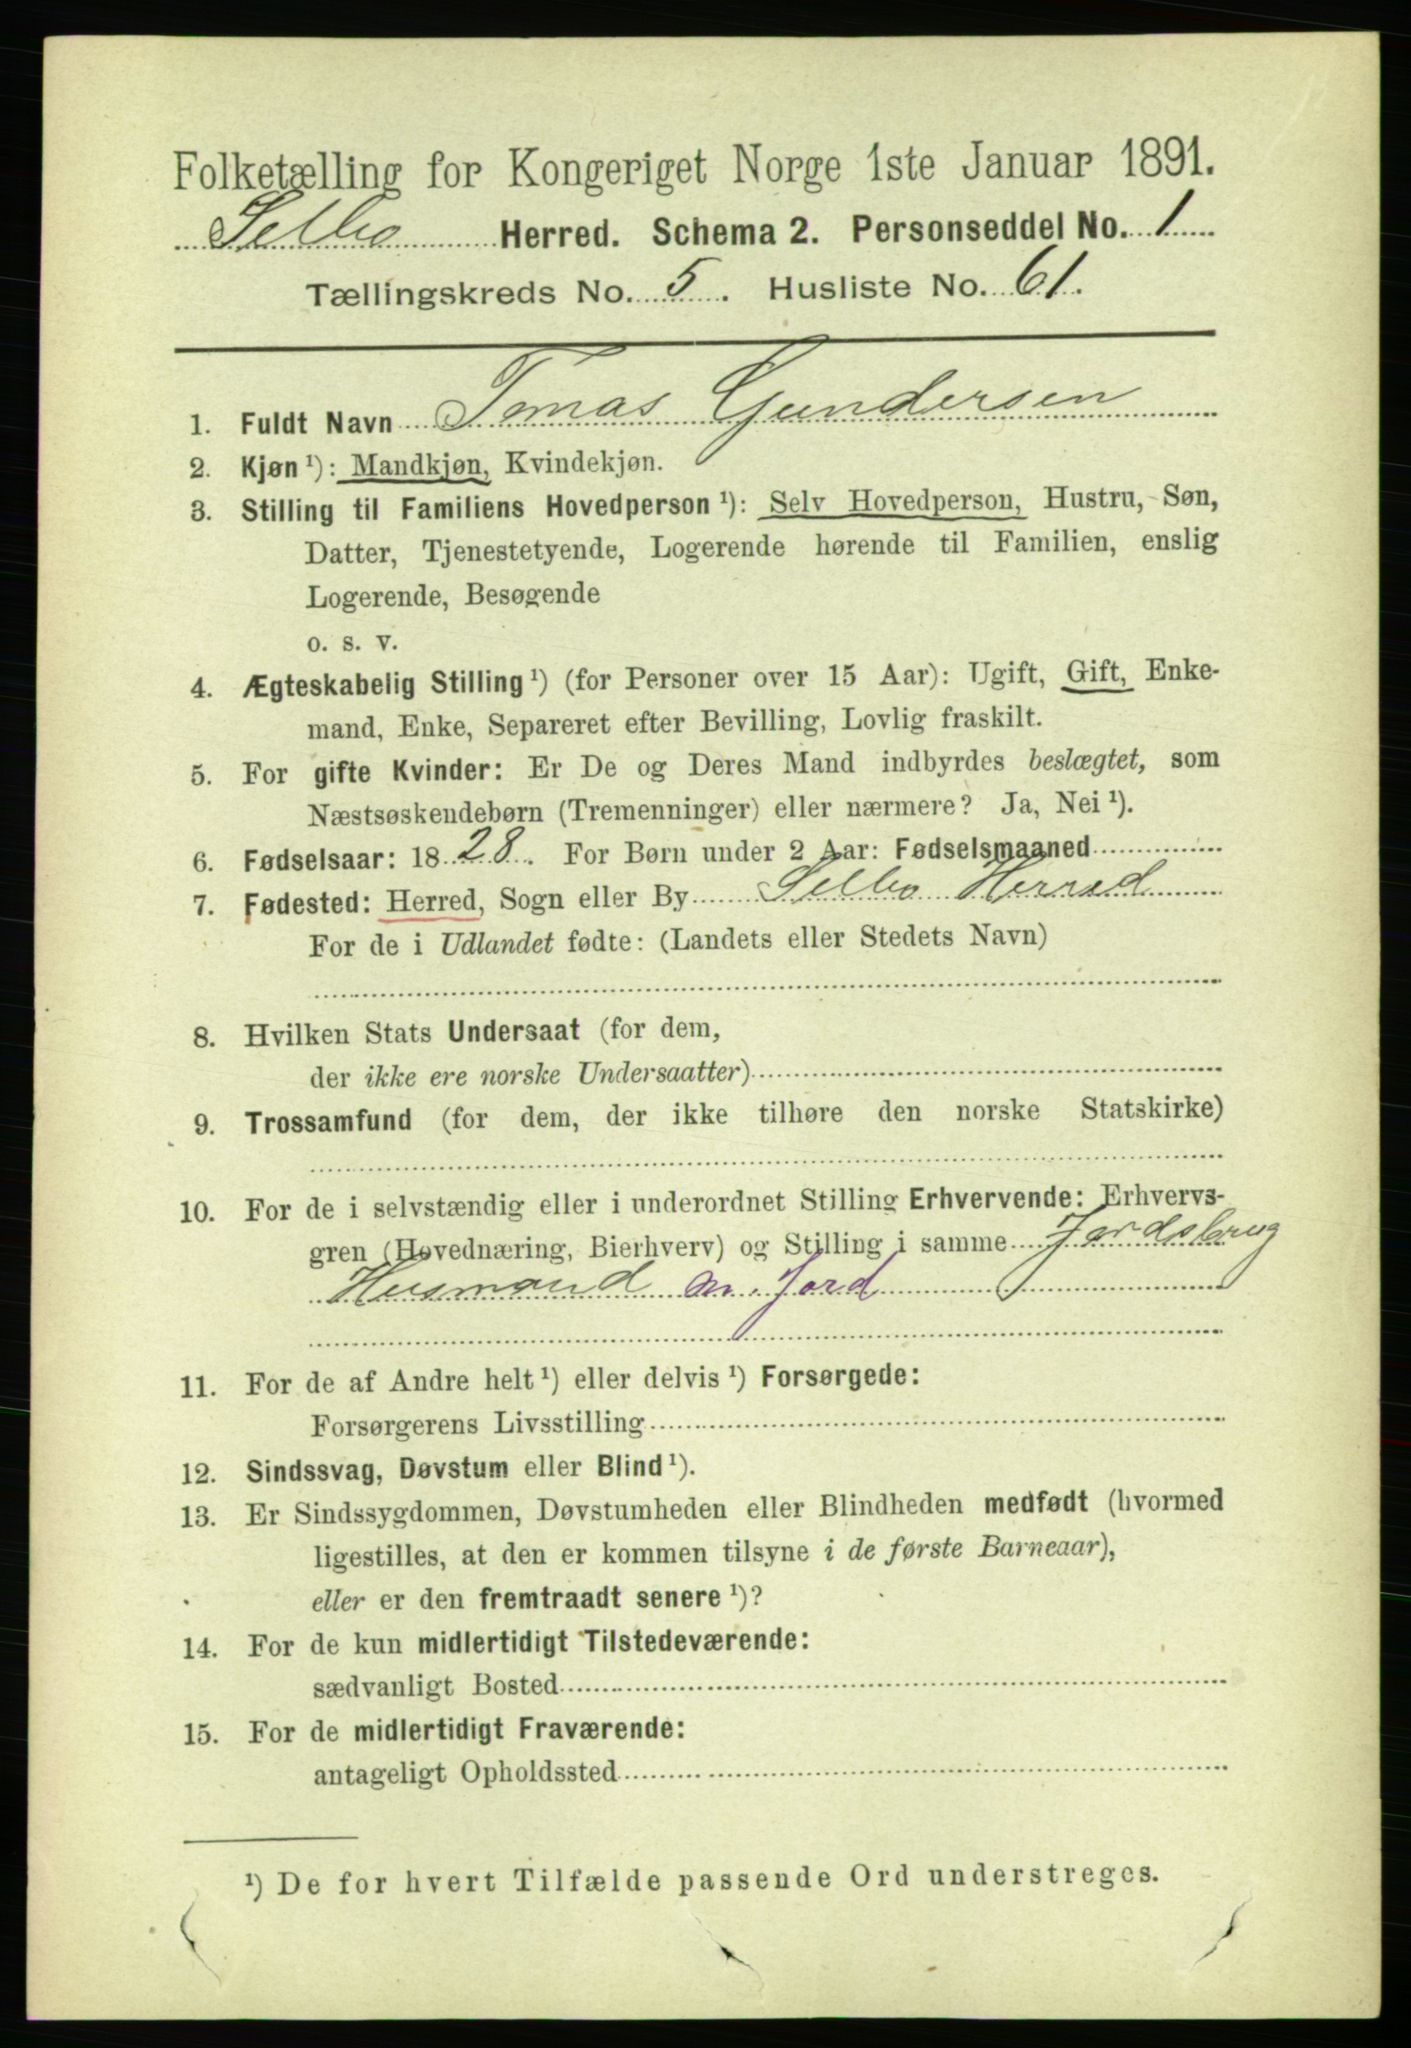 Folketælling for Kongeriget Norge 1ste Januar 1891.
Selbo Herred. Schema 2. Personseddel No. 1
Tællingskreds No. 5. Husliste No. 61.
1. Fuldt Navn Tomas Gundersen
2. Kjøn ¹): Mandkjøn, Kvindekjøn.
3. Stilling til Familiens Hovedperson ¹): Selv Hovedperson, Hustru, Søn,
Datter, Tjenestetyende, Logerende hørende til Familien, enslig
Logerende, Besøgende
o. s. v.
4. Ægteskabelig Stilling ¹) (for Personer over 15 Aar): Ugift, Gift, Enke-
mand, Enke, Separeret efter Bevilling, Lovlig fraskilt.
5. For gifte Kvinder: Er De og Deres Mand indbyrdes beslægtet, som
Næstsøskendebørn (Tremenninger) eller nærmere? Ja, Nei ¹).
6. Fødselsaar: 1828. For Børn under 2 Aar: Fødselsmaaned
7. Fødested: Herred, Sogn eller By Selbo Herred
For de i Udlandet fødte: (Landets eller Stedets Navn)
8. Hvilken Stats Undersaat (for dem,
der ikke ere norske Undersaatter)
9. Trossamfund (for dem, der ikke tilhøre den norske Statskirke)
10. For de i selvstændig eller i underordnet Stilling Erhvervende: Erhvervs-
gren (Hovednæring, Bierhverv) og Stilling i samme Jordsbrug
Husmand m. Jord
11. For de af Andre helt ¹) eller delvis ¹) Forsørgede:
Forsørgerens Livsstilling
12. Sindssvag, Døvstum eller Blind ¹).
13. Er Sindssygdommen, Døvstumheden eller Blindheden medfødt (hvormed
ligestilles, at den er kommen tilsyne i de første Barneaar),
eller er den fremtraadt senere ¹)?
14. For de kun midlertidigt Tilstedeværende:
sædvanligt Bosted
15. For de midlertidigt Fraværende:
antageligt Opholdssted
¹) De for hvert Tilfælde passende Ord understreges.